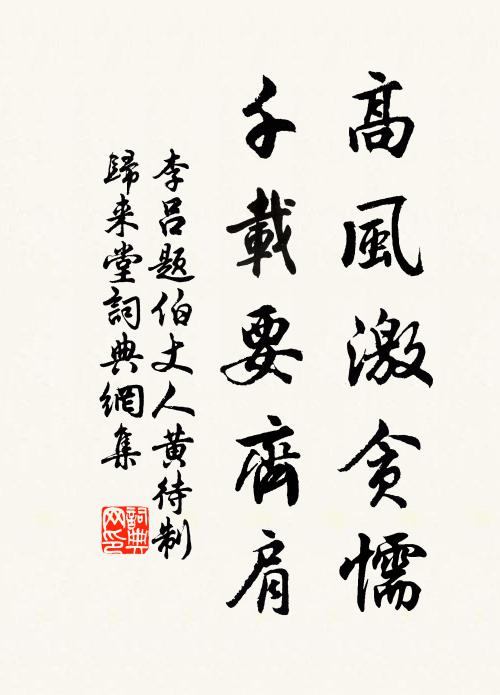 高風激貪懦
千載要齊肩
李吕題伯丈人黄待制
歸来堂詞典網集
詞典网印